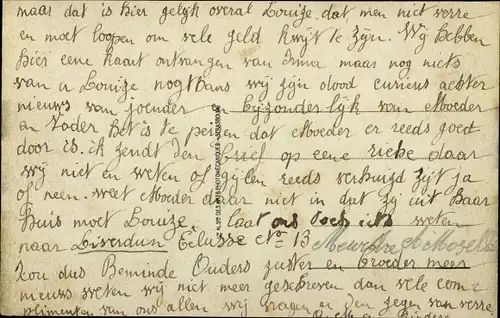 maar dat is hier gelijk overal Louize dat men niet verre
en moet loopen om vele geld kwijt te zijn. Wij hebben
hier eene kaart ontvangen van Irma maar nog niets
van u Louize nogthans wij zijn dood curieus achter
nieuws van joender en bijzonderlijk van Moeder
en Vader het is te peizen dat Moeder er reeds goed
door is. ik zendt den brief op eene
wij niet en weten of gijlen reeds verhuizd zijt ja
of neen. weet Moeder daar niet in dat zij uit haar
huis moet Louize laat ons toch iets weten
naar Liverdun Ecluse No 13 Meurthe et Moselle
zou dus Beminde Ouders zuster en broeder meer
nieuws weten wij niet meer geschreven dan vele com-
plimenten van ons allen wij vragen u den zegen van verre